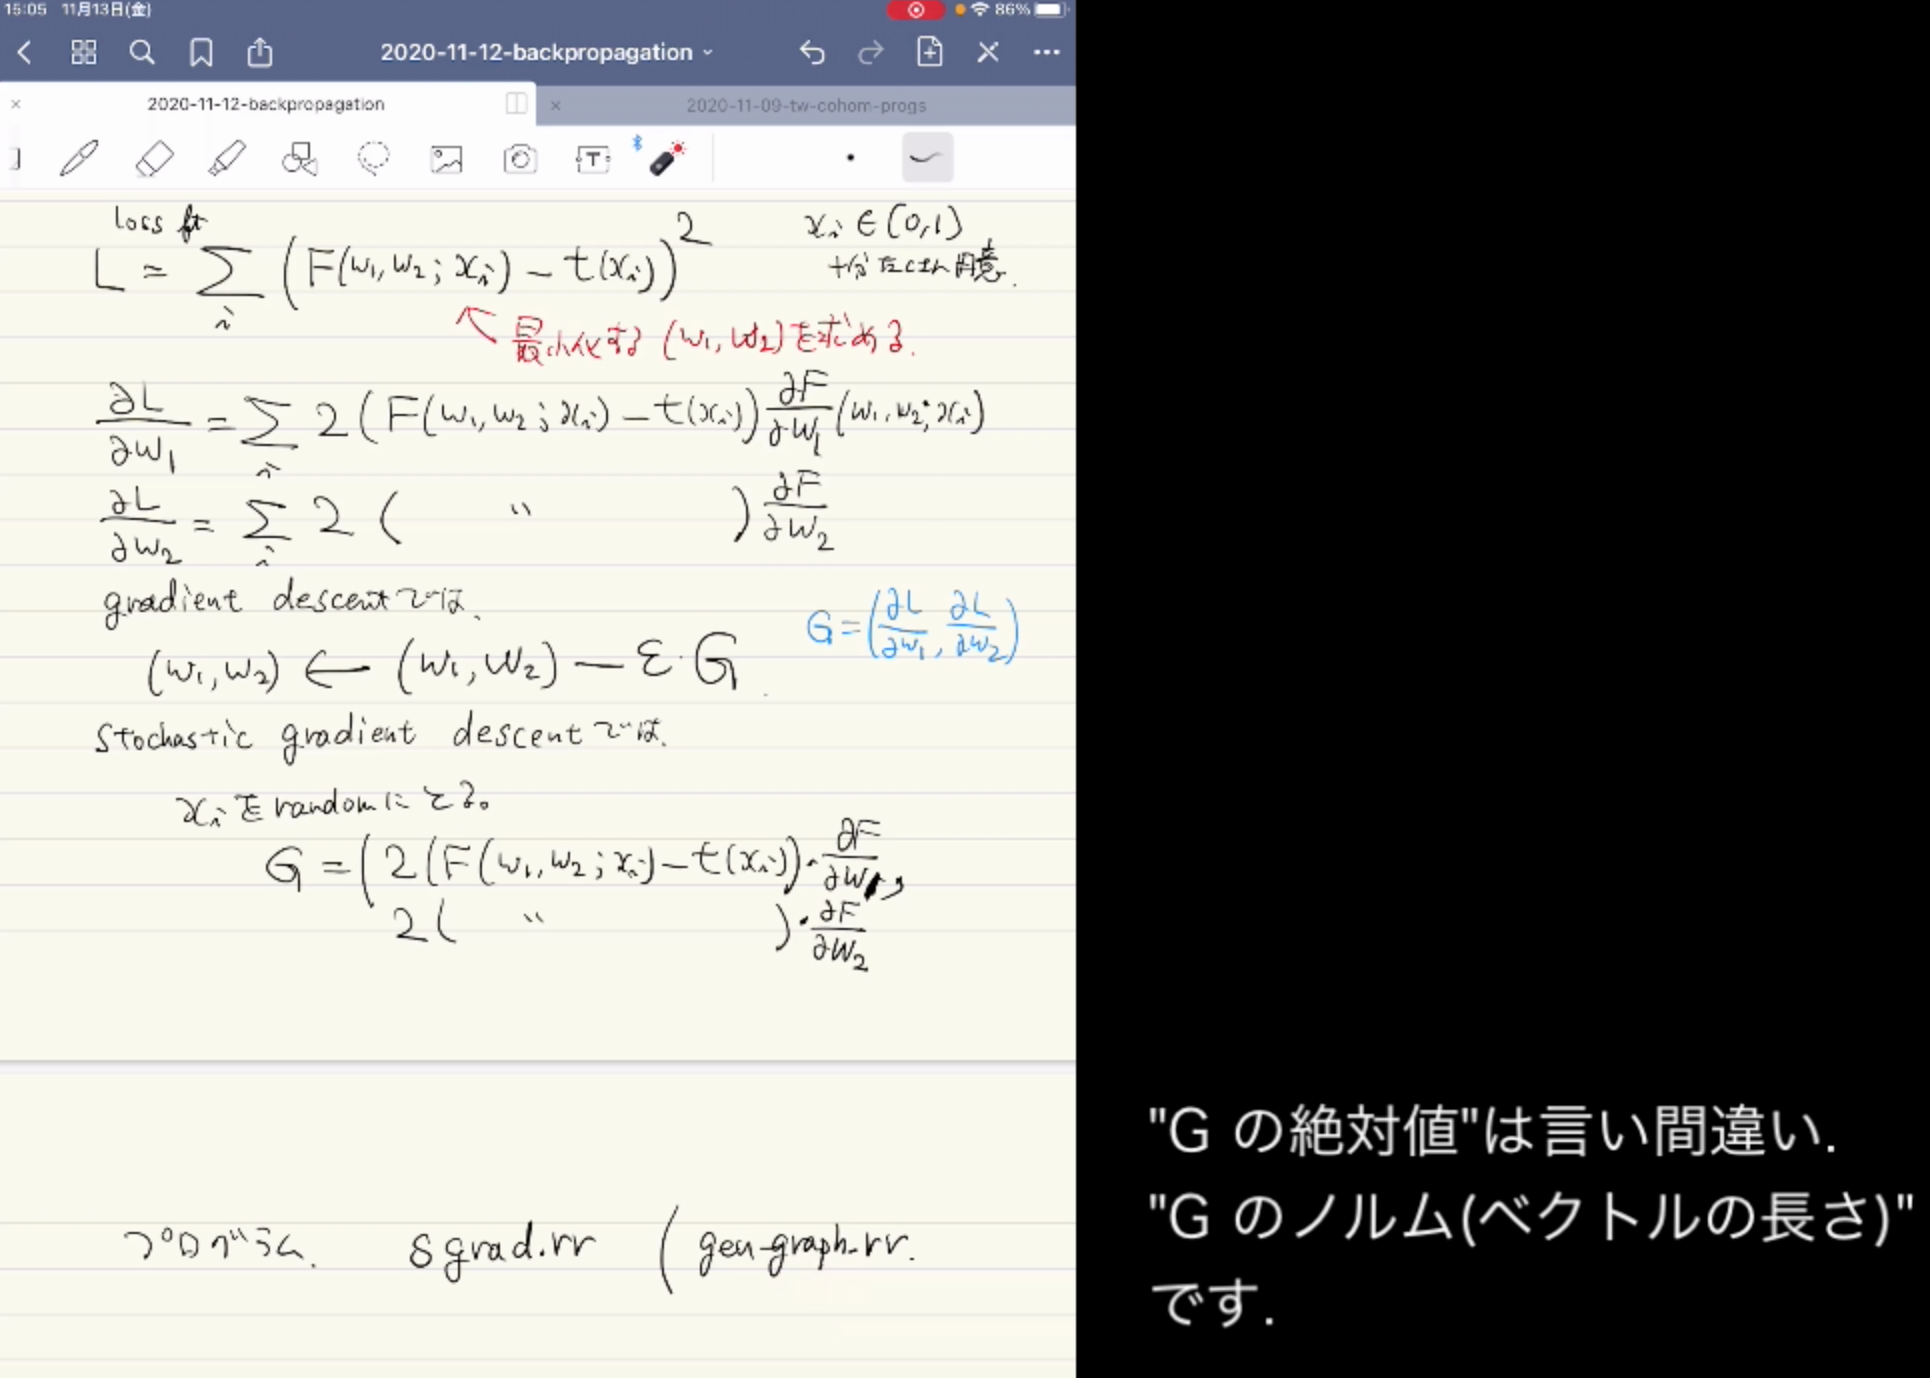 15:05 11月13日(金) 86%
2020-11-12-backpropagation
2020-11-12-backpropagation
2020-11-09-tw-cohom-progs
loss ft
L = Σ_i (F(w₁, w₂; xᵢ) − t(xᵢ))²
xᵢ ∈ (0,1)
十分たくさん用意.
最小化する (w₁, w₂) を求める.
∂L/∂w₁ = Σ_i 2 (F(w₁, w₂; xᵢ) − t(xᵢ)) ∂F/∂w₁ (w₁, w₂; xᵢ)
∂L/∂w₂ = Σ_i 2 ( 〃 ) ∂F/∂w₂
gradient descent では、
G = (∂L/∂w₁, ∂L/∂w₂)
(w₁, w₂) ← (w₁, w₂) − ε·G
stochastic gradient descent では.
xᵢ を random にとる。
G = (2(F(w₁, w₂; xᵢ) − t(xᵢ))·∂F/∂w₁,
2( 〃 )·∂F/∂w₂
プログラム. sgrad.rr (gen-graph.rr.
"G の絶対値"は言い間違い.
"G のノルム(ベクトルの長さ)"
です.